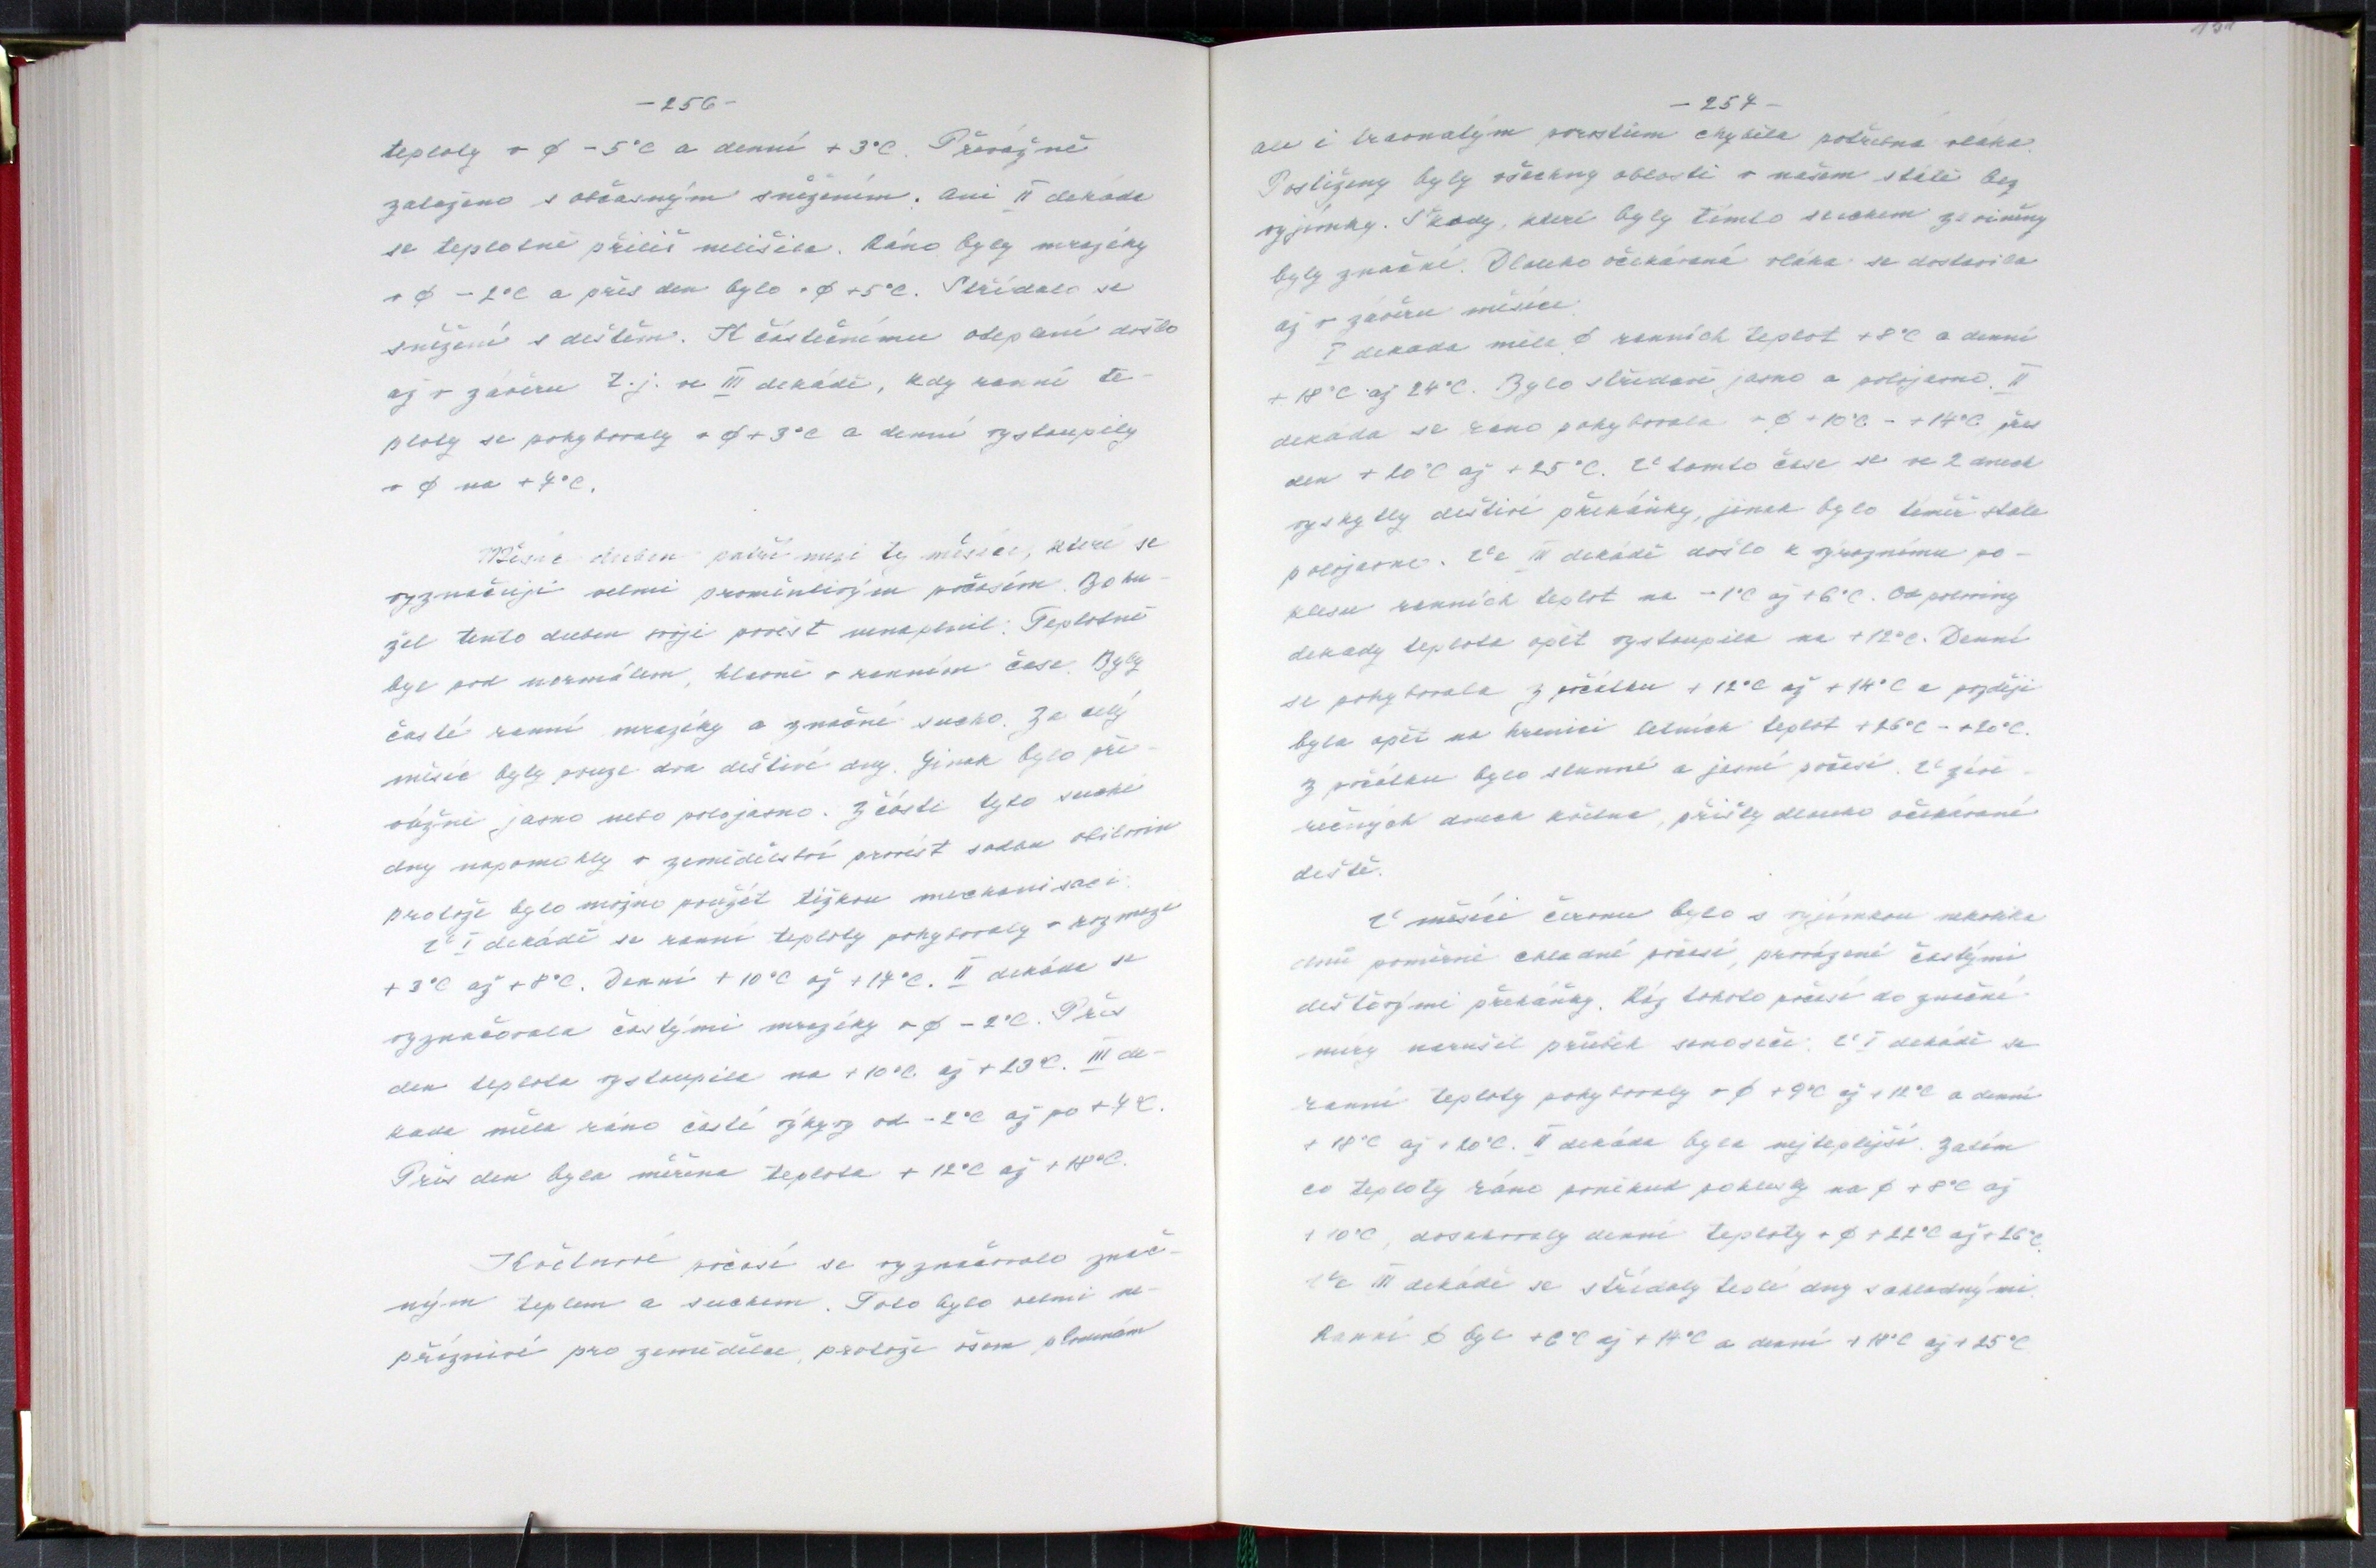 - 256 -
teploty v ø - 5°C a denní + 3°C. Převážně
zataženo s občasným sněžením. Ani II dekáda
se teplotně příliš nelišila. Ráno byly mrazíky
v ø - 2°C a přes den bylo v ø +5°C. Střídalo se
sněžení s deštěm. K částečnému oteplení došlo
až v závěru t.j. ve III dekádě, kdy ranní te-
ploty se pohybovaly v ø + 3°C a denní vystoupily
v ø na + 7°C.
Měsíc duben patří mezi ty měsíce, které se
vyznačují velmi proměnlivým počasím. Bohu-
žel tento duben svoji pověst nenaplnil. Teplotně
byl pod normálem, hlavně v ranním čase. Byly
časté ranní mrazíky a značné sucho. Za celý
měsíc byly pouze dva deštivé dny. Jinak bylo pře-
vážně jasno nebo polojasno. Zčásti tyto suché
dny napomohly v zemědělství provést sadbu obilovin
protože bylo možno použít těžkou mechanisaci.
V I dekádě se ranní teploty pohybovaly v rozmezí
+ 3°C až + 8°C. Denní + 10°C až + 17°C. II dekáda se
vyznačovala častými mrazíky v ø - 2°C. Přes
den teplota vystoupila na + 10°C až + 23°C. III de-
kada měla ráno časté výkyvy od - 2°C až po + 7°C.
Přes den byla měřena teplota + 12°C až + 18°C.
Květnové počasí se vyznačovalo znač-
ným teplem a suchem. Toto bylo velmi ne-
příznivé pro zemědělce, protože všem plodinám
- 257 -
ale i travnatým porostům chyběla potřebná vláha.
Postiženy byly všechny oblasti v našem státě bez
vyjímky. Škody, které byly tímto suchem zaviněny
byly značné. Dlouho očekávaná vláha se dostavila
až v závěru měsíce.
I dekada měla ø ranních teplot + 8°C a denní
+ 18°C až 24°C. Bylo střídavě jasno a polojasno. II
dekáda se ráno pohybovala v ø + 10°C - + 14°C přes
den + 20°C až + 25°C. V tomto čase se ve 2 dnech
vyskytly deštivé přeháňky, jinak bylo téměř stále
polojasno. Ve III dekádě došlo k výraznému po-
klesu ranních teplot na - 1°C až + 6°C. Od poloviny
dekady teplota opět vystoupila na + 12°C. Denní
se pohybovala z počátku + 12°C až + 14°C a později
byla opět na hranici letních teplot + 26°C - + 20°C.
Z počátku bylo slunné a jasné počasí. V závě-
rečných dnech května, přišly dlouho očekávané
deště.
V měsíci červnu bylo s vyjímkou několika
dnů poměrně chladné počasí, provázené častými
deštovými přeháňky. Ráz tohoto počasí do značné
míry narušil průběh senoseče. V I dekádě se
ranní teploty pohybovaly v ø + 9°C až + 12°C a denní
+ 18°C až + 20°C. II dekáda byla nejteplejší. Zatím
co teploty ráno poněkud poklesly na ø + 8°C až
+ 10°C, dosahovaly denní teploty v ø + 22°C až + 26°C.
Ve III dekádě se střídaly teplé dny s chladnými.
Ranní ø byl + 6°C až + 14°C a denní + 18°C až + 25°C